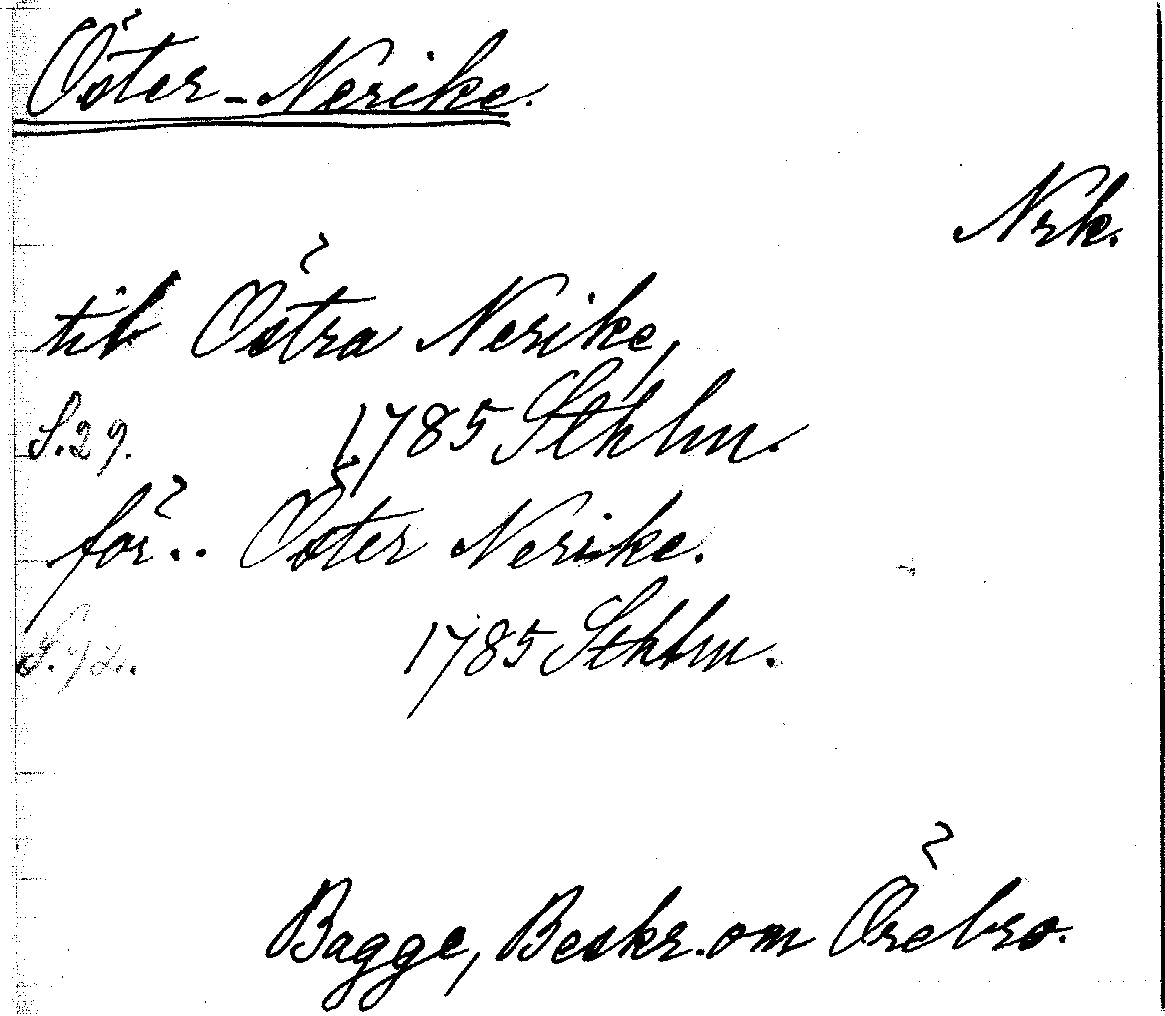 Öster-Nerike.
Nrk.
til Östra Nerike,
S.29. 1785 Sthlm.
för.. Öster Nerike.
1785 Sthlm.
Bagge, Beskr. om Örebro.